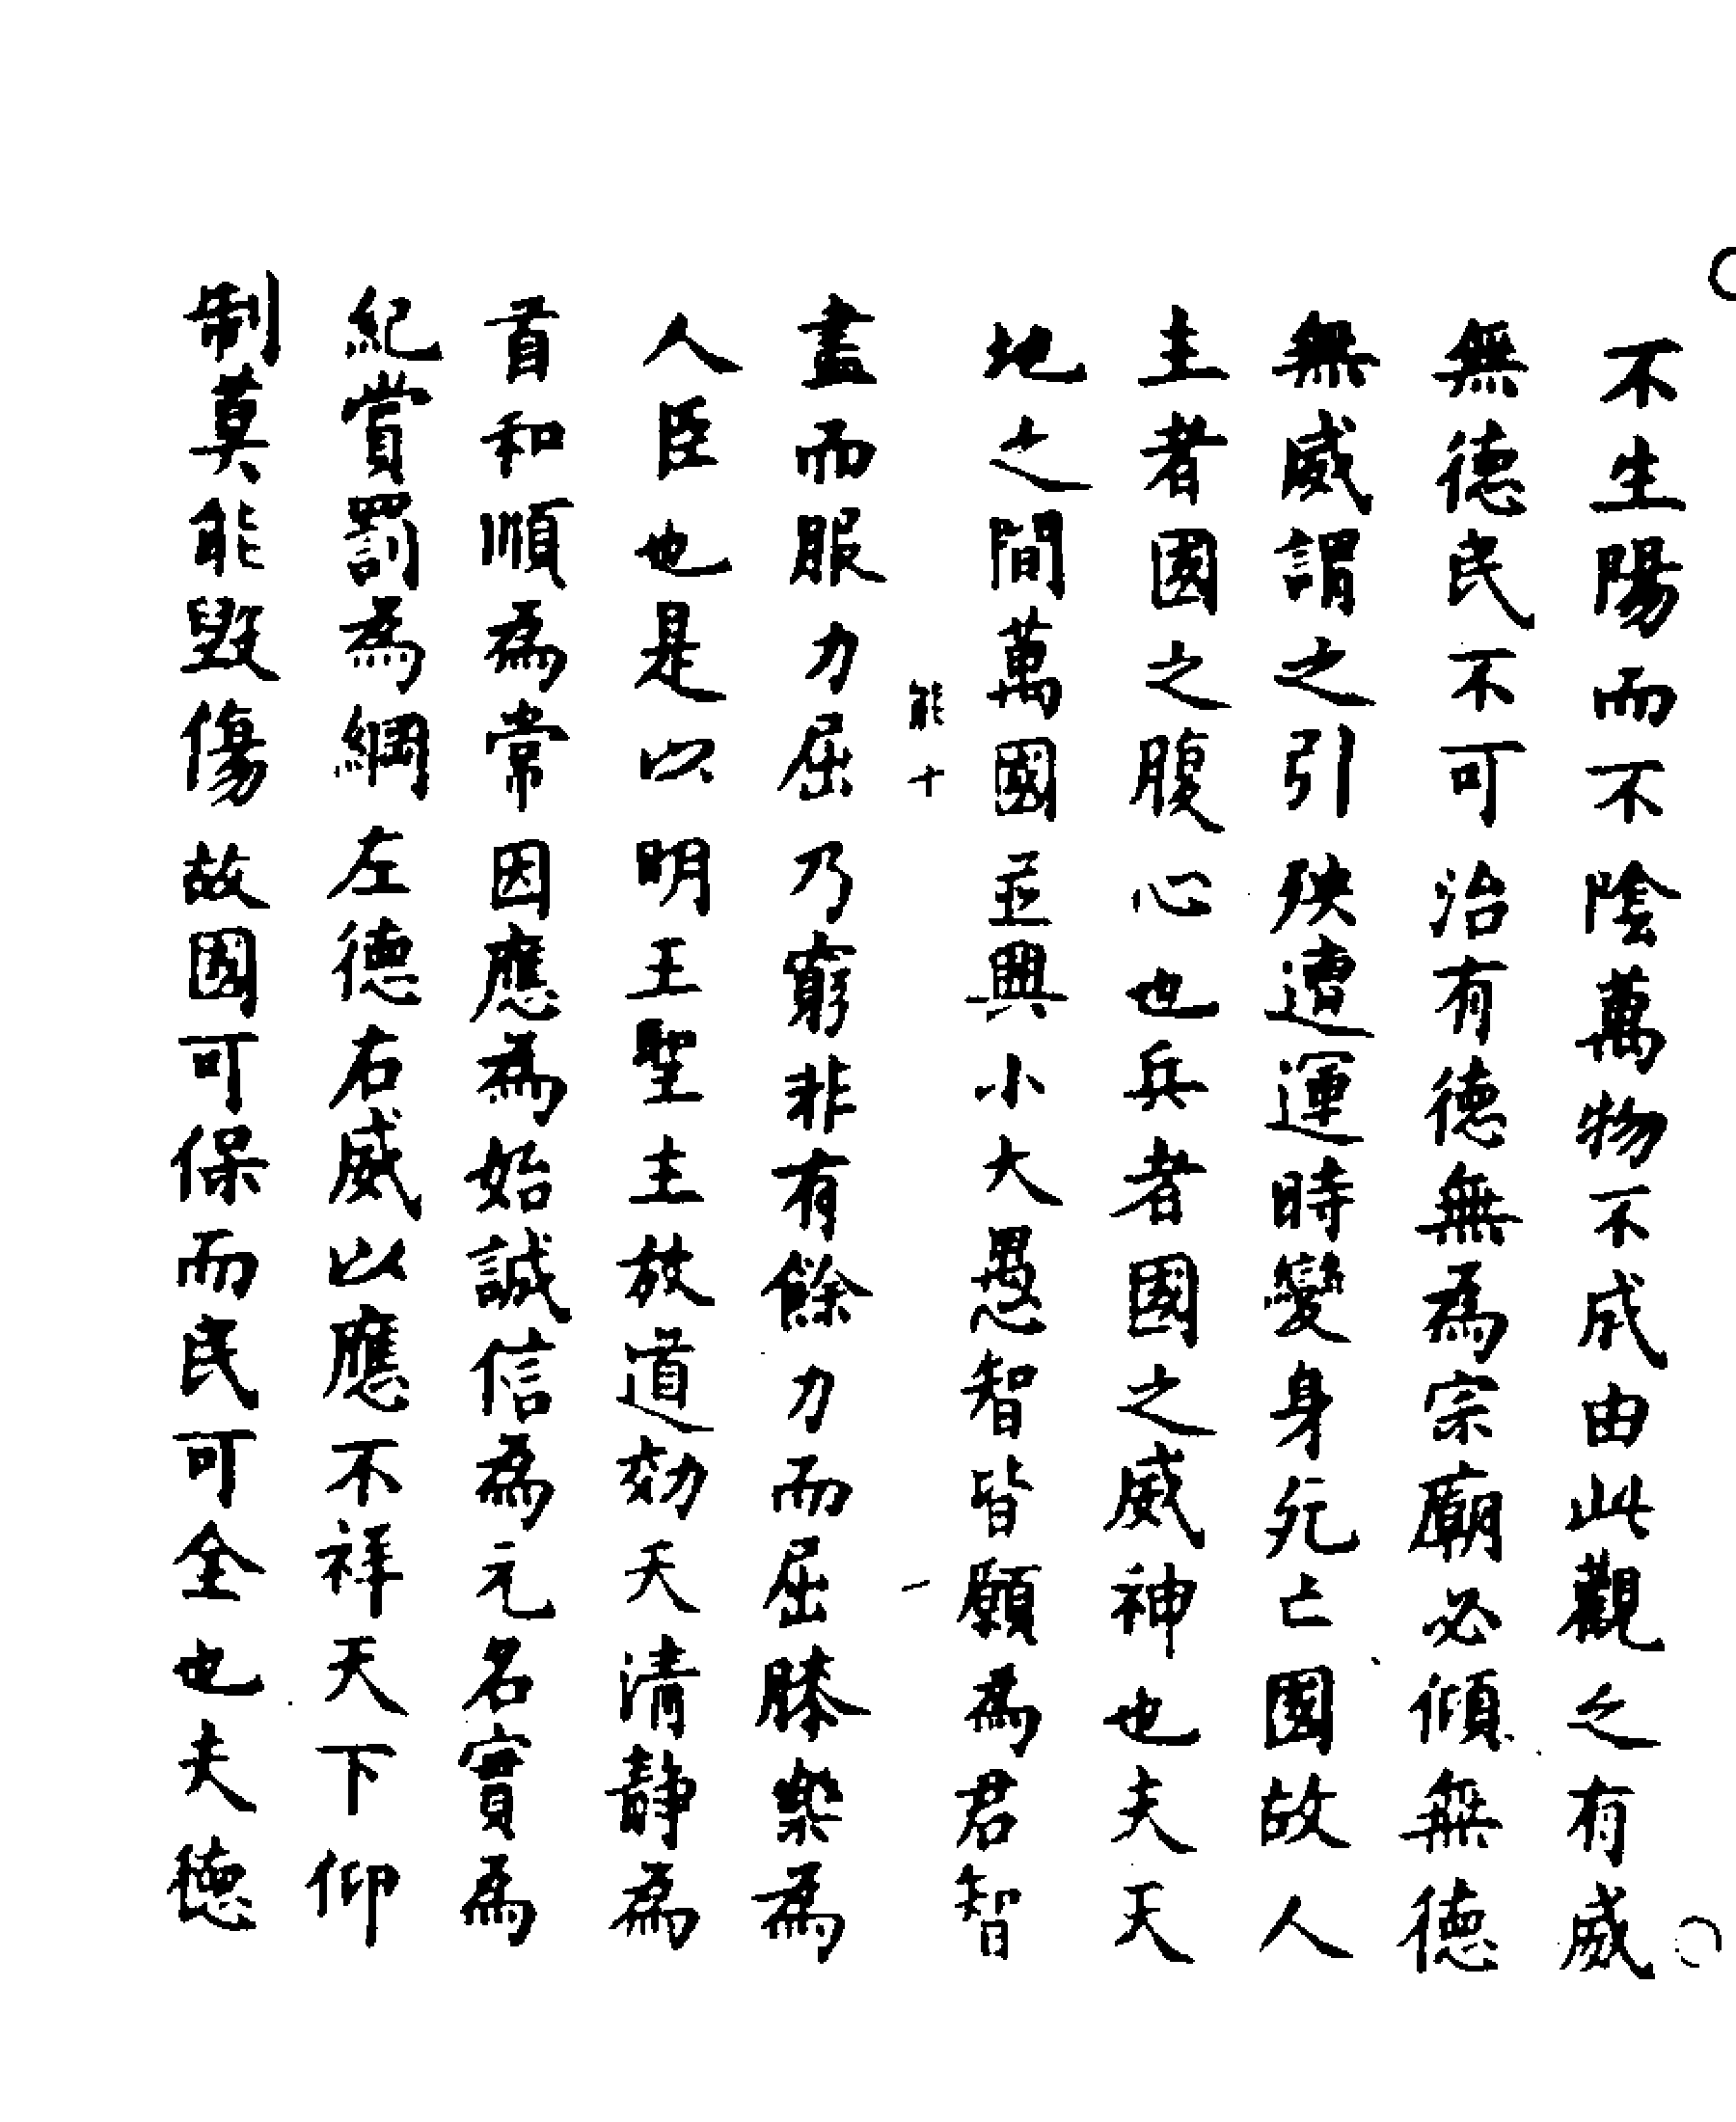 不生陽而不陰萬物不成由此觀之有威
無德民不可治有德無為宗廟必傾無德
無威謂之引殃遭運時變身死亡國故人
主者國之腹心也兵者國之威神也夫天
地之間萬國並興小大愚智皆願為君智
能十一
盡而服力屈乃窮非有餘力而屈膝樂為
人臣也是以明王聖主放道効天清静為
首和順為常因應為始誠信為元名實為
紀賞罰為綱左德右威以應不祥天下仰
制莫能毀傷故国可保而民可全也夫德